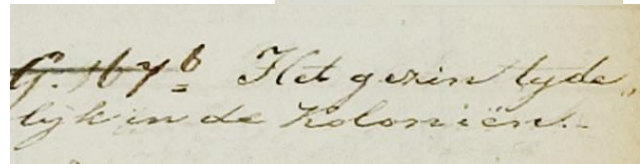 G. 167 b Het gezin tyde„
lyk in de Koloniën.-